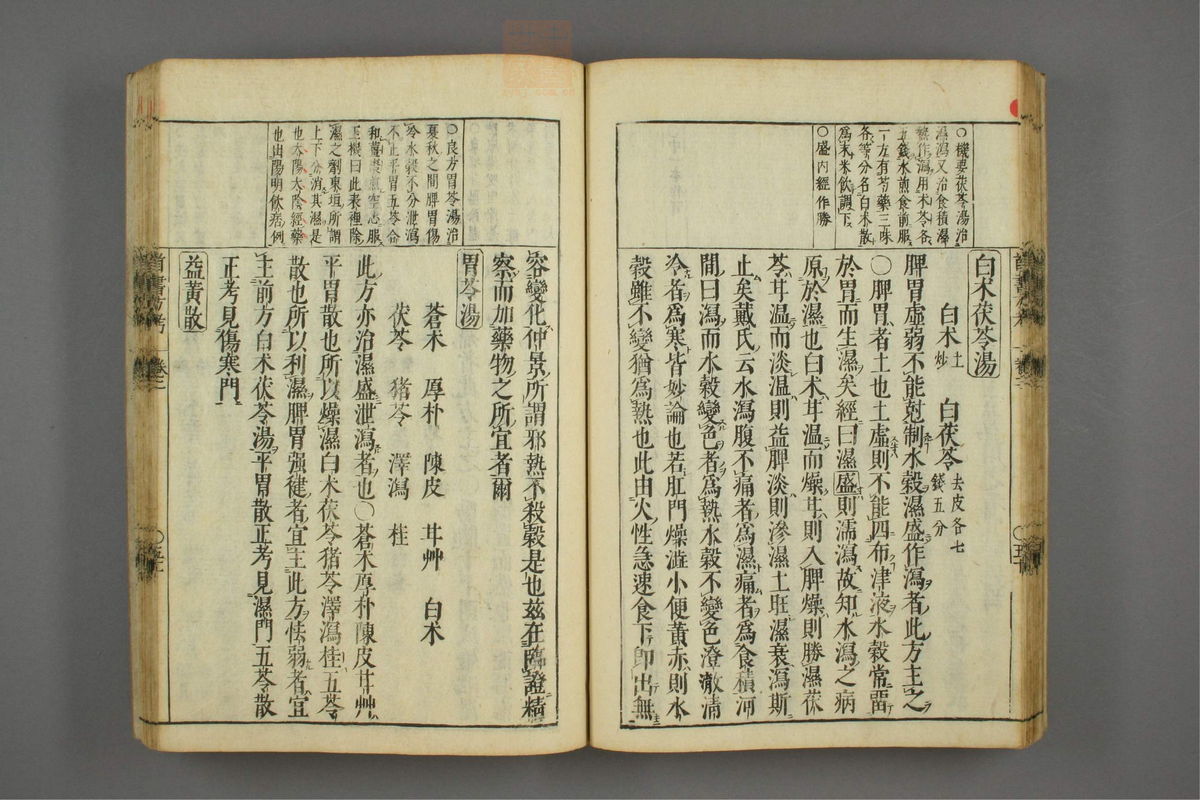 ○機要茯苓湯治
濕瀉又治食積濕
熱作瀉用朮苓各
五錢水煎食前服
一方有芍藥三味
各等分名白朮散
爲末米飲調下
○盛內經作勝
白朮茯苓湯
白朮土炒 白茯苓去皮各七錢五分
脾胃虛弱不能尅制水穀濕盛作瀉者此方主之
○脾胃者土也土虛則不能四布津液水穀常畱
於胃而生濕矣經曰濕盛則濡瀉故知水瀉之病
原於濕也白朮甘溫而燥甘則入脾燥則勝濕茯
苓甘溫而淡溫則益脾淡則滲濕土旺濕衰瀉斯
止矣戴氏云水瀉腹不痛者爲濕痛者爲食積河
間曰瀉而水穀變色者爲熱水穀不變色澄澈清
冷者爲寒皆妙論也若肛門燥澁小便黃赤則水
穀雖不變猶爲熱也此由火性急速食下即出無
○良方胃苓湯治
夏秋之間脾胃傷
冷水穀不分泄瀉
不止平胃五苓合
和薑棗煎空心服
玉機曰此表裡除
濕之劑東垣所謂
上下分消其濕是
也太陽太陰經藥
也出陽明飲病例
容變化仲景所謂邪熱不殺穀是也兹在臨證精
察而加藥物之所宜者爾
胃苓湯
蒼朮 厚朴 陳皮 甘艸 白朮
茯苓 猪苓 澤瀉 桂
此方亦治濕盛泄瀉者也○蒼朮厚朴陳皮甘艸
平胃散也所以燥濕白朮茯苓猪苓澤瀉桂五苓
散也所以利濕脾胃强健者宜主此方怯弱者宜
主前方白朮茯苓湯平胃散正考見濕門五苓散
正考見傷寒門
益黃散